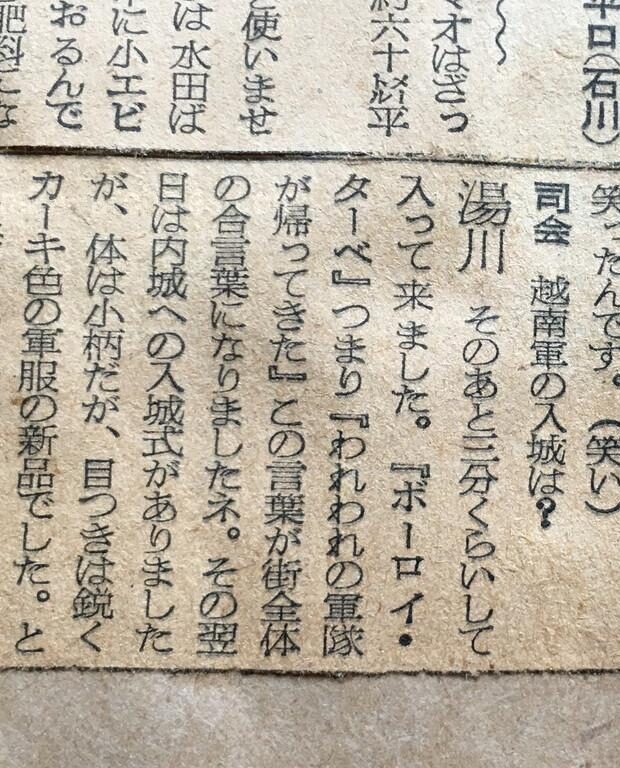 口（石川）
オはざっ
六十粁平
使いませ
は水田ば
に小エビ
おるんで
肥料にな
笑ったんです。（笑い）
司会　越南軍の入城は？
湯川　そのあと三分くらいして
入って来ました。『ボーロイ・
ターベ』つまり『われわれの軍隊
が帰ってきた』この言葉が街全体
の合言葉になりましたネ。その翌
日は内城への入城式がありました
が、体は小柄だが、目つきは鋭く
カーキ色の軍服の新品でした。と